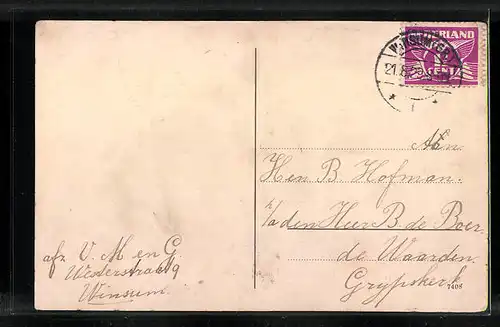 NEDERLAND
CENT
Aan
Hen B Hofman.
p/a den Heer B. de Boer
de Waarden
Grypskerk
1408
afz V. M en G.
Westerstraat 9
Winsum.